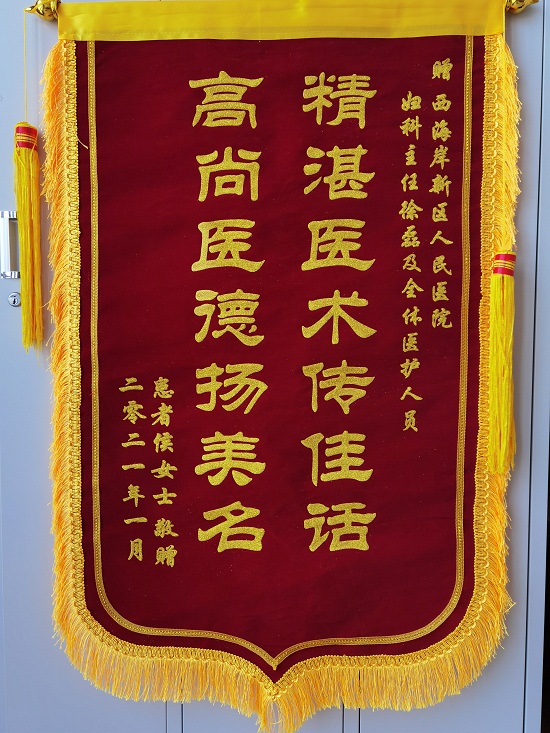 赠西海岸新区人民医院
妇科主任徐磊及全体医护人员
精湛医术传佳话
高尚医德扬美名
患者侯女士敬赠
二零二一年一月